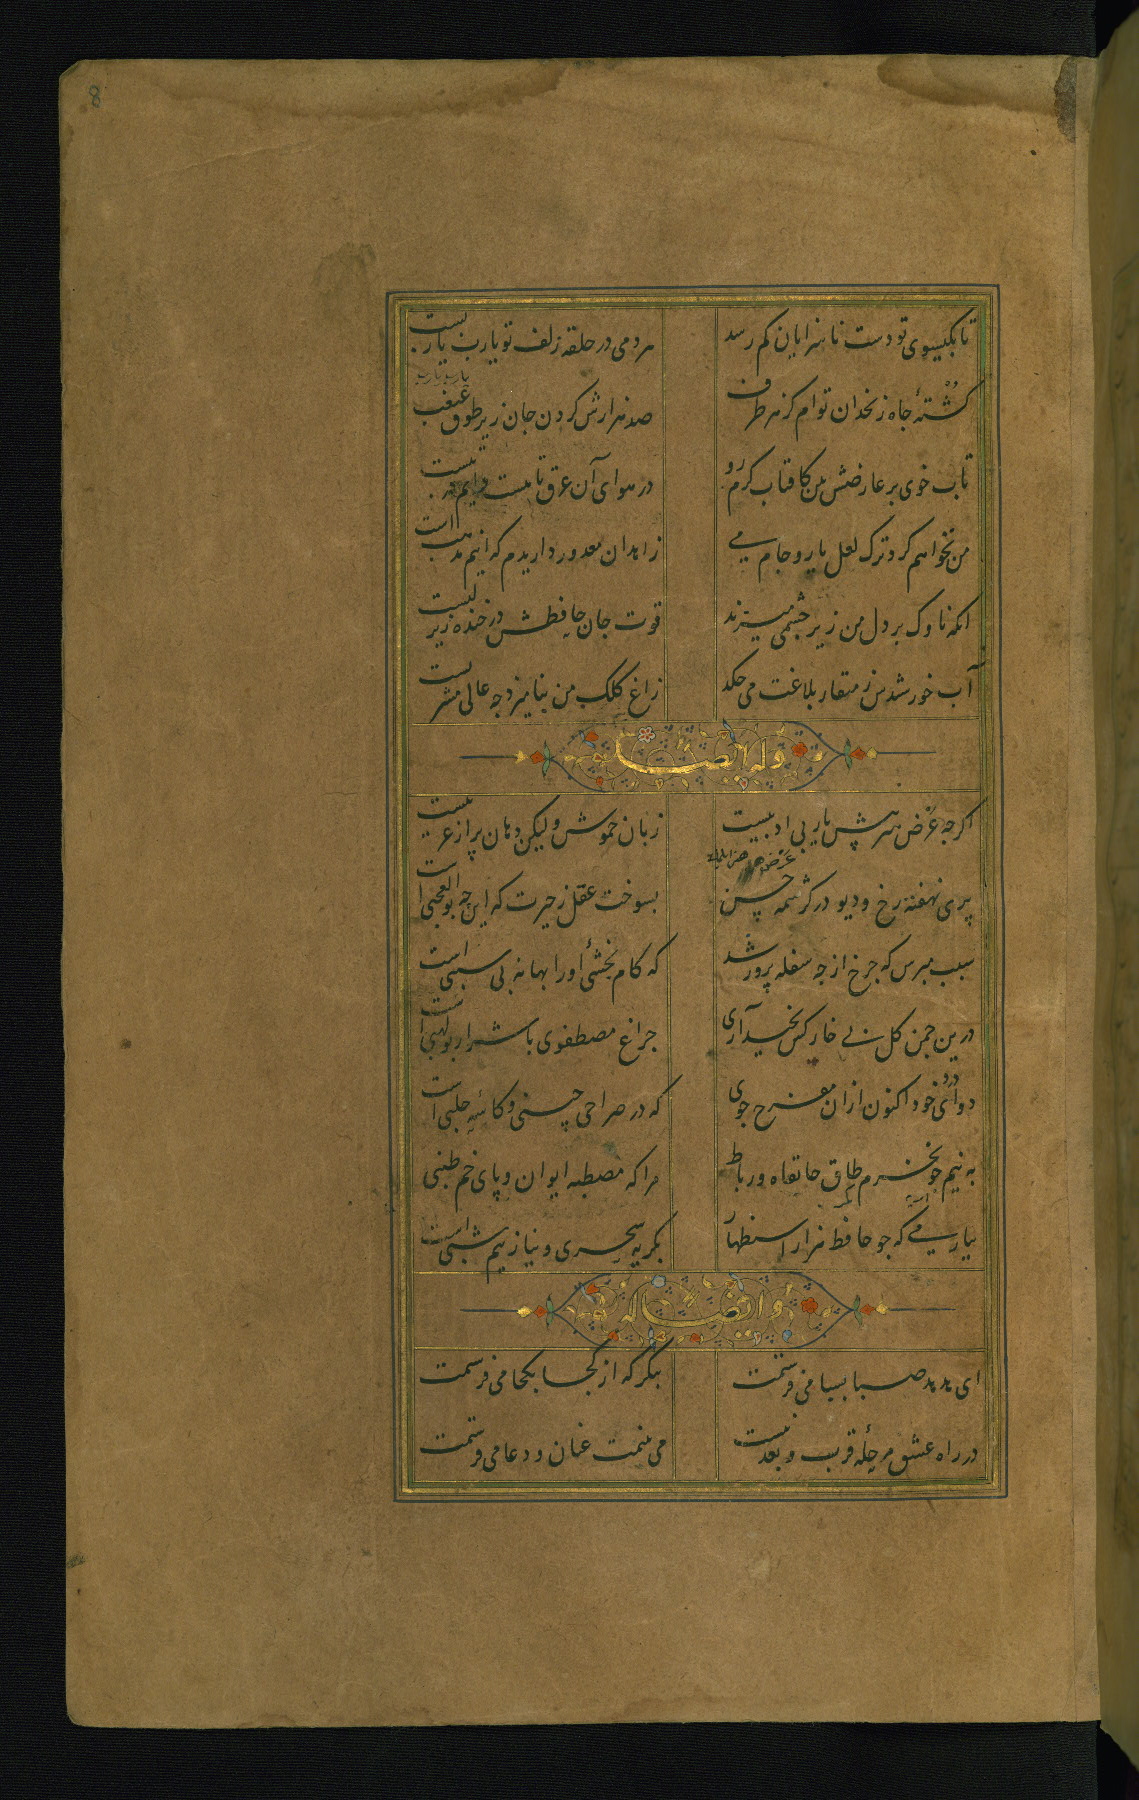 8
تا بکیسوی تو دست ناسزایان کم رسد
هر دمی در حلقه زلف تو یارب یاربست
یارب یارب
کشتهٔ چاه زنخدان توام کز هر طرف
صد هزارش کردن جان زیر طوق غبغب
تاب خوی بر عارضش بین کافتاب کرم رو
در هوای آن عرق تا هست دایم در تبست
من نخواهم کرد ترک لعل یار و جام می
زاهدان معذور داریدم که اینم مذهب است
انکه ناوک بر دل من زیر چشمی میزند
قوت جان حافظش در خنده زیر لبست
آب خورشیدش ز منقار بلاغت می چکد
زاغ کلک من بنامیزد چه عالی مشربست
وله ایضا
اکرچه عرض هنر پیش یار بی ادبیست
زبان خموش ولیکن دهان پر از عربیست
عرض هنر
پری نهفته رخ و دیو در کرشمه حسن
بسوخت عقل ز حیرت که این چه بوالعجبی است
سبب مپرس که چرخ از چه سفله پرور شد
که کام بخشی او را بهانه بی سببی است
درین چمن کل بی خار کس نچید آری
چراغ مصطفوی با شرار بولهبی است
دوای درد خود اکنون ازان مفرح جوی
که در صراحی چینی و کاسه حلبی است
به نیم جو نخرم طاق خانقاه و رباط
مرا که مصطبه ایوان و پای خم طنبی
بیار می که چو حافظ هزار استظهار
بکریه سحری و نیاز نیم شبی است
و ایضا له
ای هدهد صبا بسبا می فرستمت
بنکر که از کجا بکجا می فرستمت
در راه عشق مرحلهٔ قرب و بعد نیست
می بینمت عیان و دعا می فرستمت